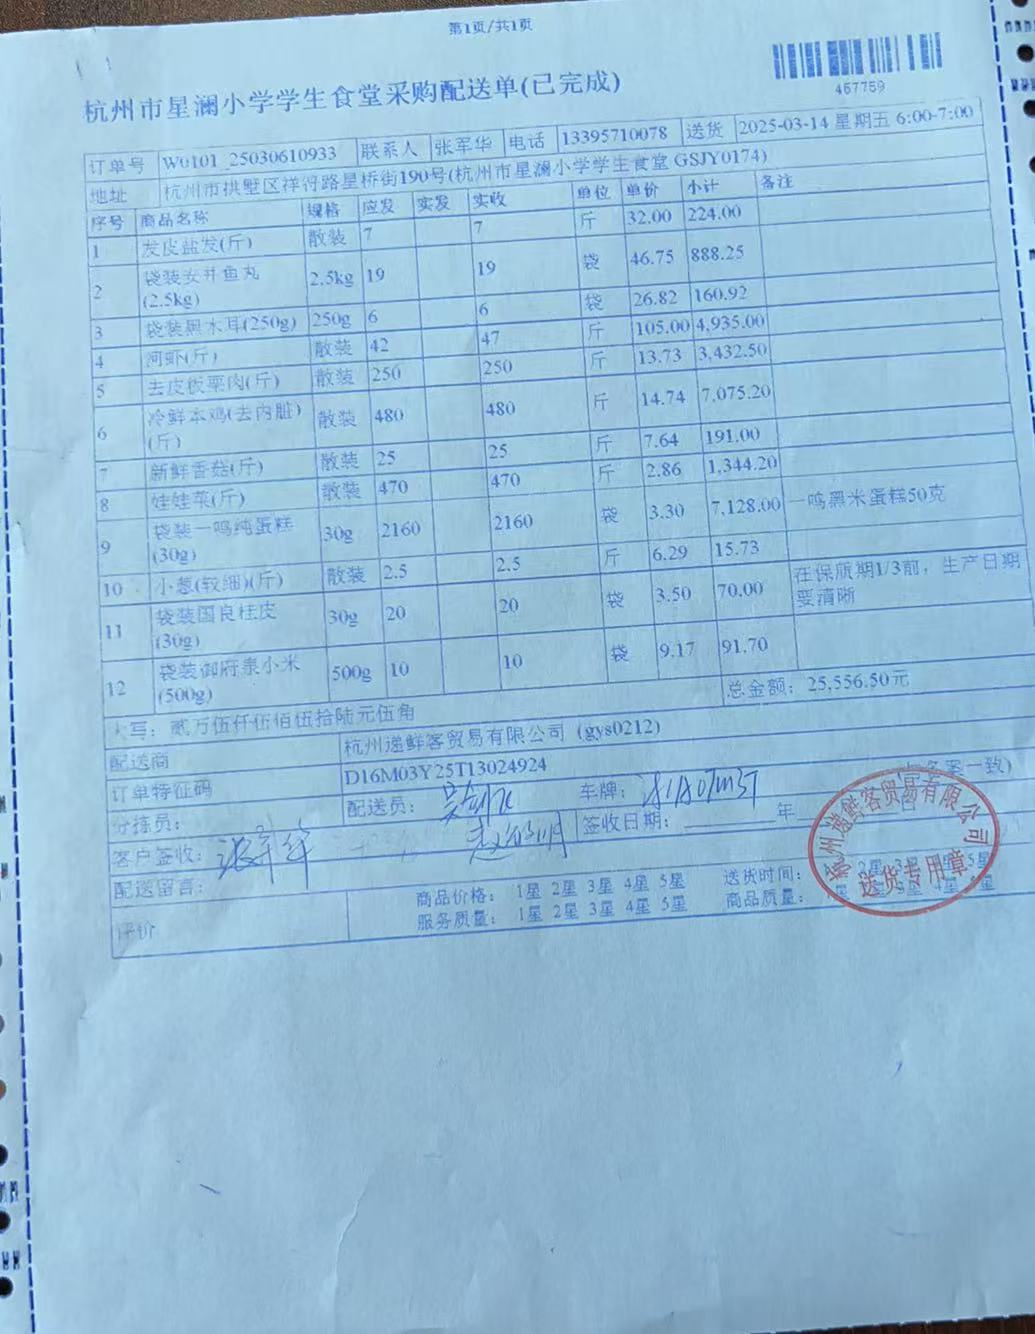 第1页/共1页
457759
杭州市星澜小学学生食堂采购配送单(已完成)
订单号 W0101_25030610933 联系人 张军华 电话 13395710078 送货 2025-03-14 星期五 6:00-7:00
地址 杭州市拱墅区祥符路星桥街190号(杭州市星澜小学学生食堂 GSJY0174)
序号 商品名称 规格 应发 实发 实收 单位 单价 小计 备注
1 发皮盐发(斤) 散装 7 7 斤 32.00 224.00
2 袋装安井鱼丸(2.5kg) 2.5kg 19 19 袋 46.75 888.25
3 袋装黑木耳(250g) 250g 6 6 袋 26.82 160.92
4 河虾(斤) 散装 42 47 斤 105.00 4,935.00
5 去皮板栗肉(斤) 散装 250 250 斤 13.73 3,432.50
6 冷鲜本鸡(去内脏)(斤) 散装 480 480 斤 14.74 7,075.20
7 新鲜香菇(斤) 散装 25 25 斤 7.64 191.00
8 娃娃菜(斤) 散装 470 470 斤 2.86 1,344.20
9 袋装一鸣纯蛋糕(30g) 30g 2160 2160 袋 3.30 7,128.00 一鸣黑米蛋糕50克
10 小葱(较细)(斤) 散装 2.5 2.5 斤 6.29 15.73
11 袋装国良桂皮(30g) 30g 20 20 袋 3.50 70.00 在保质期1/3前，生产日期要清晰
12 袋装御府泉小米(500g) 500g 10 10 袋 9.17 91.70
总金额：25,556.50元
大写：贰万伍仟伍佰伍拾陆元伍角
配送商 杭州递鲜客贸易有限公司（gys0212)
订单特征码 D16M03Y25T13024924
分拣员： 配送员： 车牌： 备案一致)
客户签收：张军华 签收日期： 年
配送留言：
评价 商品价格： 1星 2星 3星 4星 5星 送货时间： 2星 3星 4星 5星
服务质量： 1星 2星 3星 4星 5星 商品质量： 星 星 3星 4星 5星
杭州递鲜客贸易有限公司
送货专用章